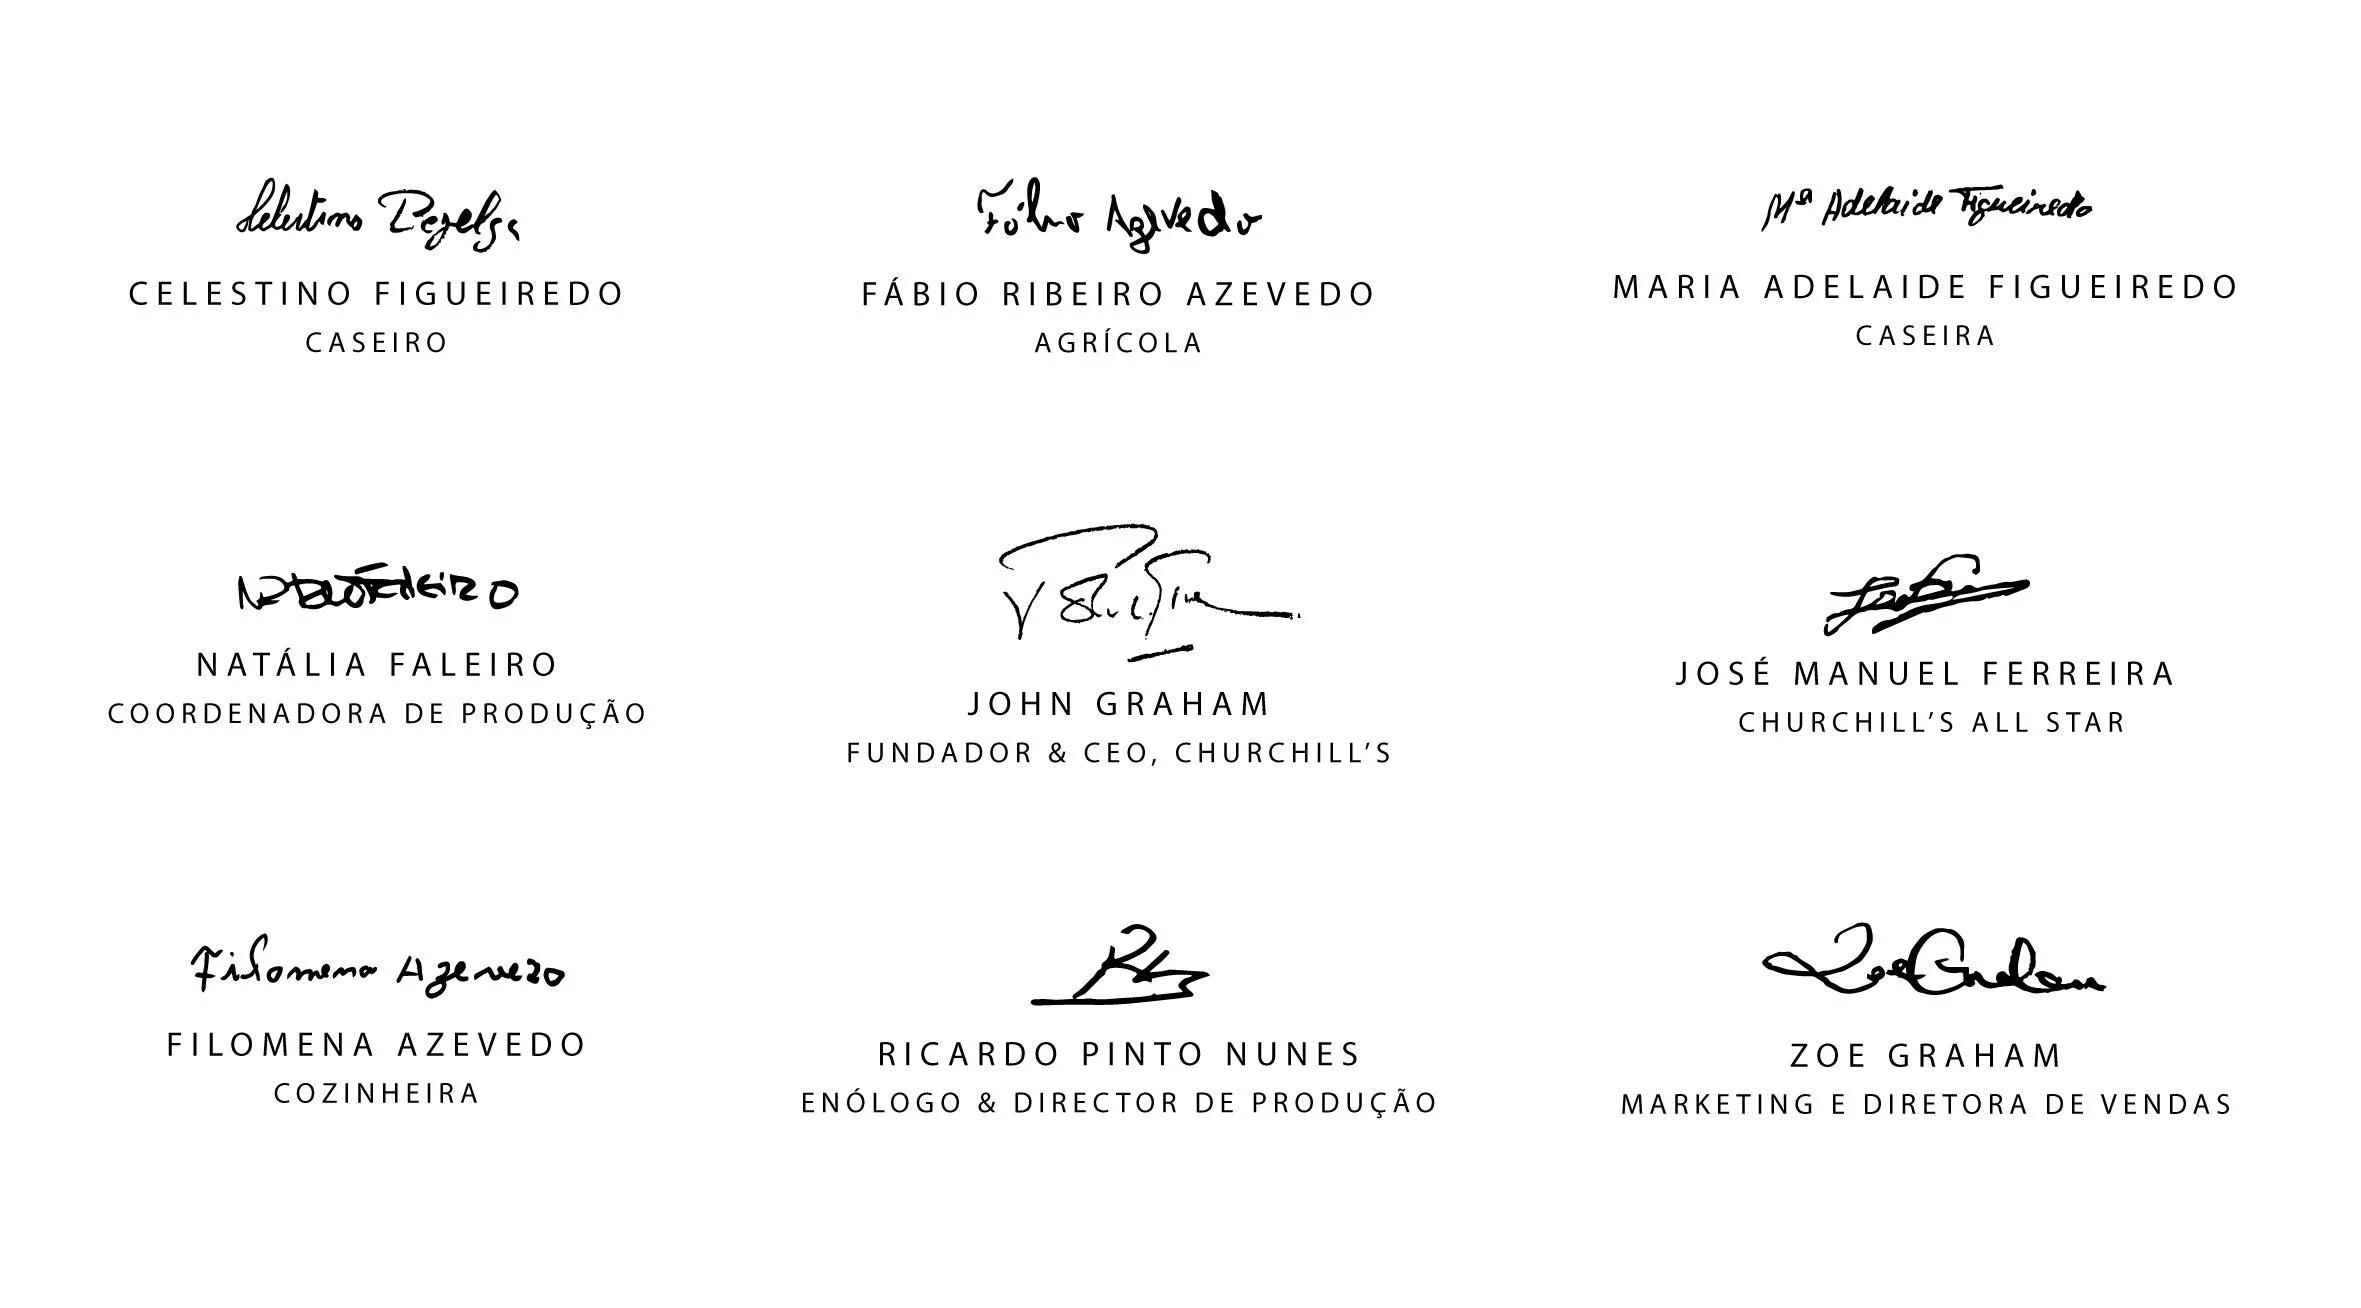 Celestino
CELESTINO FIGUEIREDO
CASEIRO
Fábio Azevedo
FÁBIO RIBEIRO AZEVEDO
AGRÍCOLA
Mª Adelaide Figueiredo
MARIA ADELAIDE FIGUEIREDO
CASEIRA
NATÁLIA FALEIRO
COORDENADORA DE PRODUÇÃO
JOHN GRAHAM
FUNDADOR & CEO, CHURCHILL’S
JOSÉ MANUEL FERREIRA
CHURCHILL’S ALL STAR
Filomena Azevedo
FILOMENA AZEVEDO
COZINHEIRA
RICARDO PINTO NUNES
ENÓLOGO & DIRECTOR DE PRODUÇÃO
Zoe Graham
ZOE GRAHAM
MARKETING E DIRETORA DE VENDAS